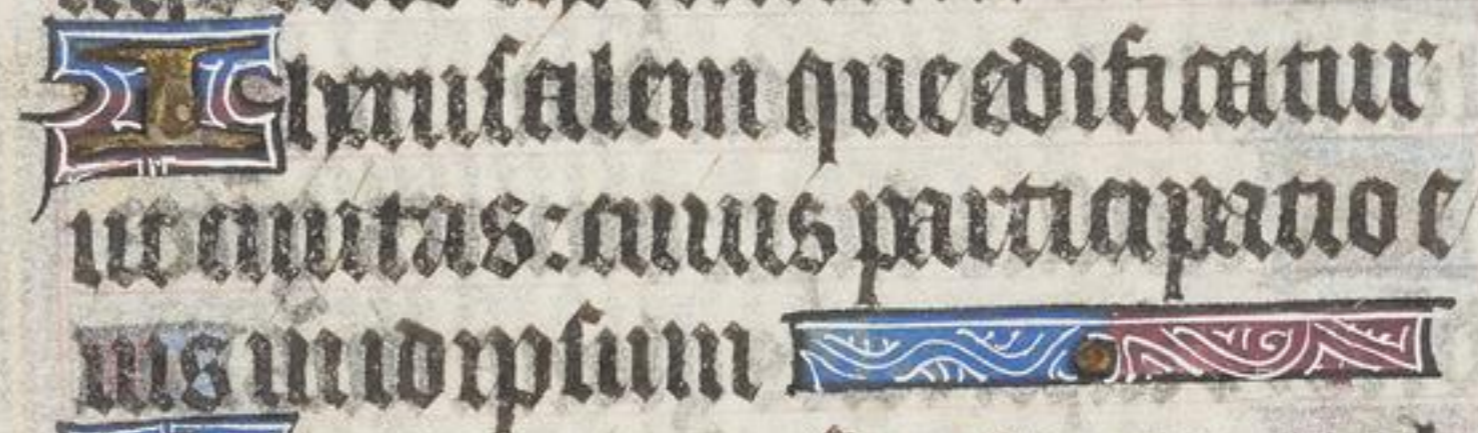 Iherusalem que edificatur
ut ciuitas: cuius participatio e
ius in idipsum